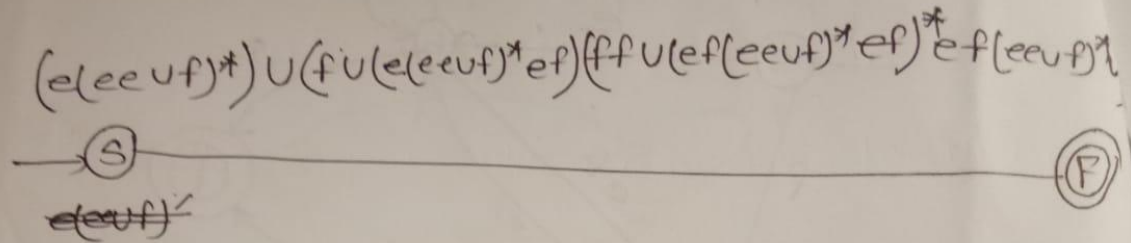 (e(ee∪f)*)∪(f∪(e(ee∪f)*ef)(ff∪(ef(ee∪f)*ef)*ef(ee∪f)*
S F
e(ee∪f)*